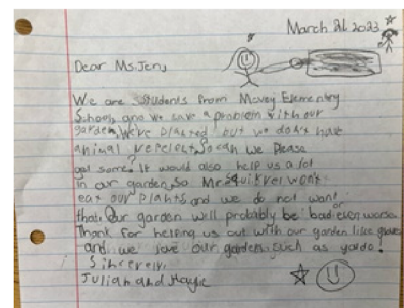 March 21 2023
Dear Ms. Jen,
We are students from Movey Elementry
School, and we have a problem with our
garden, We're planted but we don't have
animal repelent, So can we please
get some? It would also help us a lot
in our garden, So Mr Squirrel won't
eat our plants and we do not want
that. Our garden will probably be bad or even worse.
Thank for helping us out with our garden like
and we love our garden, such as you do!
Sincerely,
Julian and